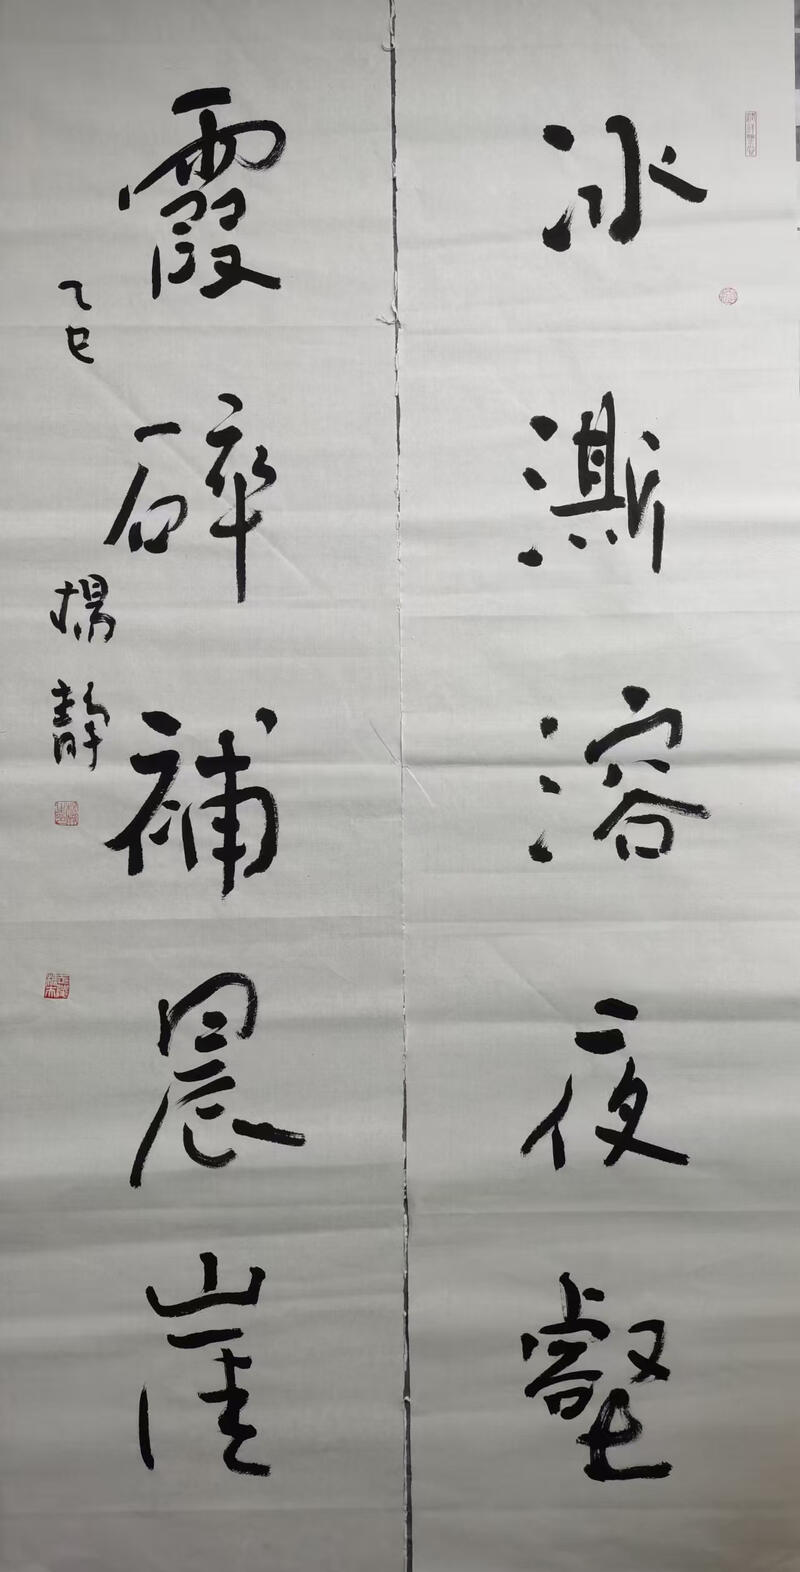 冰澌溶夜壑
霞碎補晨崖
乙巳 楊静